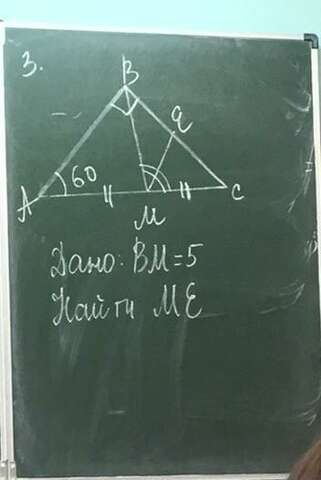 3.
B
E
A 60 M C
Дано: BM=5
Найти ME